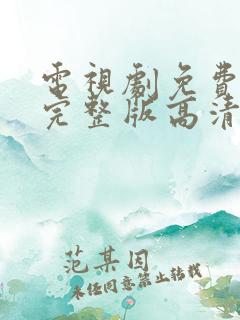 電視劇免費
完整版高清
范某因
未经同意禁止转载